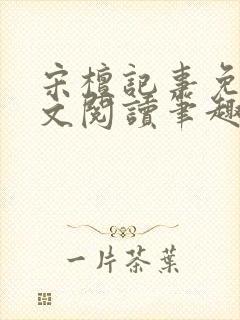 宋檀記事免
文閱讀筆趣
一片茶葉